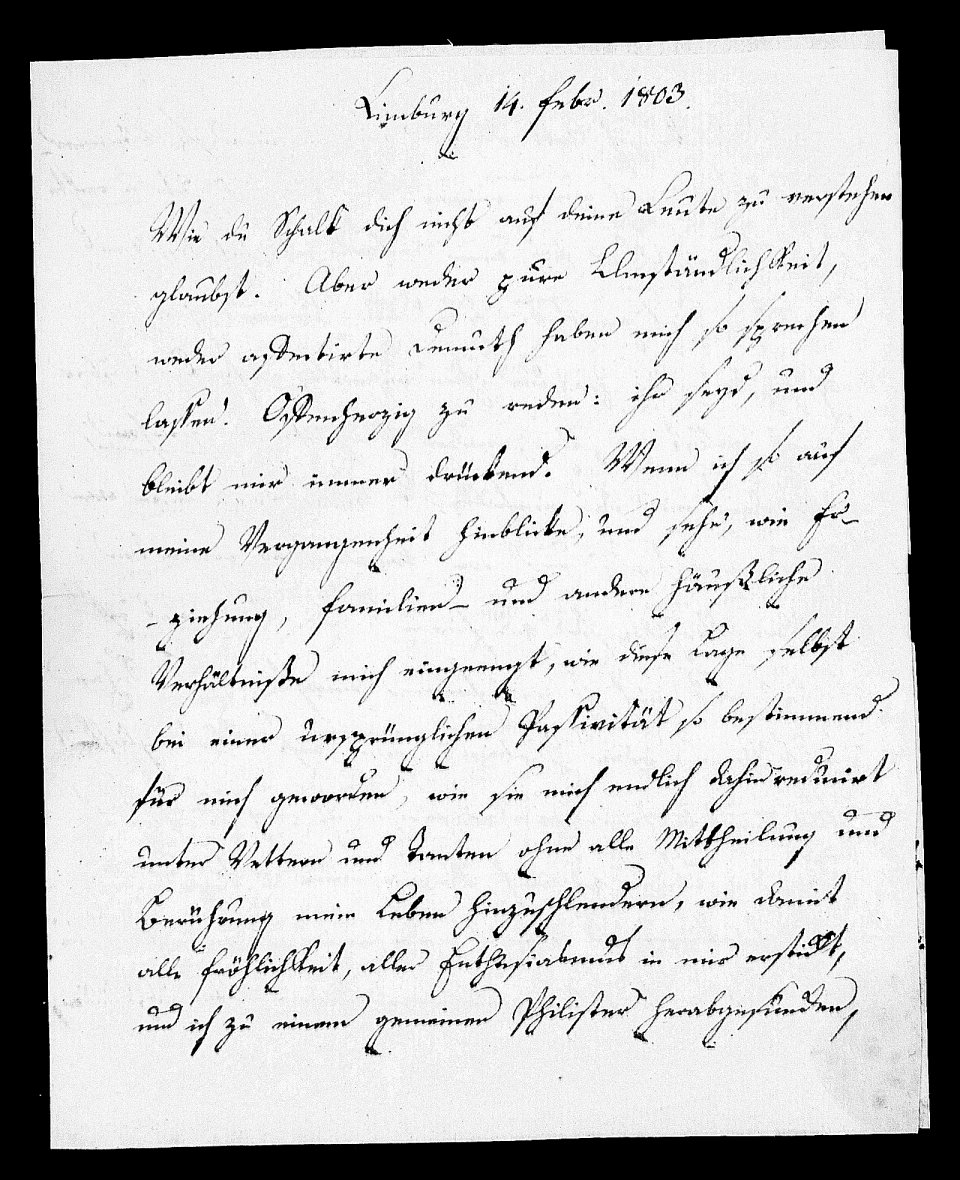 Limburg 14. Febr. 1803.
Wie du Schalk dich nicht auf deine Leute zu verstehen
glaubst. Aber weder pure Umständlichkeit,
weder affectirte Demuth haben mich so sprechen
lassen. Offenherzig zu reden: ihr seyd, und
bleibt mir immer drückend. Wenn ich so auf
meine Vergangenheit hinblicke, und sehe, wie Er-
-ziehung, Familien- und andere häußliche
Verhältniße mich eingeengt, wie diese Lage selbst
bei einer ursprünglichen Passivität so bestimmend
für mich geworden, wie sie mich endlich dahin reducirt
unter Vettern und Tanten ohne alle Mittheilung und
Berührung mein Leben hinzuschlendern, wie damit
alle Fröhlichkeit, aller Enthusiasmus in mir erstickt,
und ich zu einem gemeinen Philister herabgesunken,